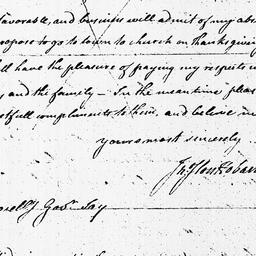 favorable, and business will admit of my abs
propose to go to town to church on thanksgivin
ll have the pleasure of paying my respects
and the family — In the meantime pleas
stfull compliments to them, and believe me
yours most sincerely
Gov.r Jay